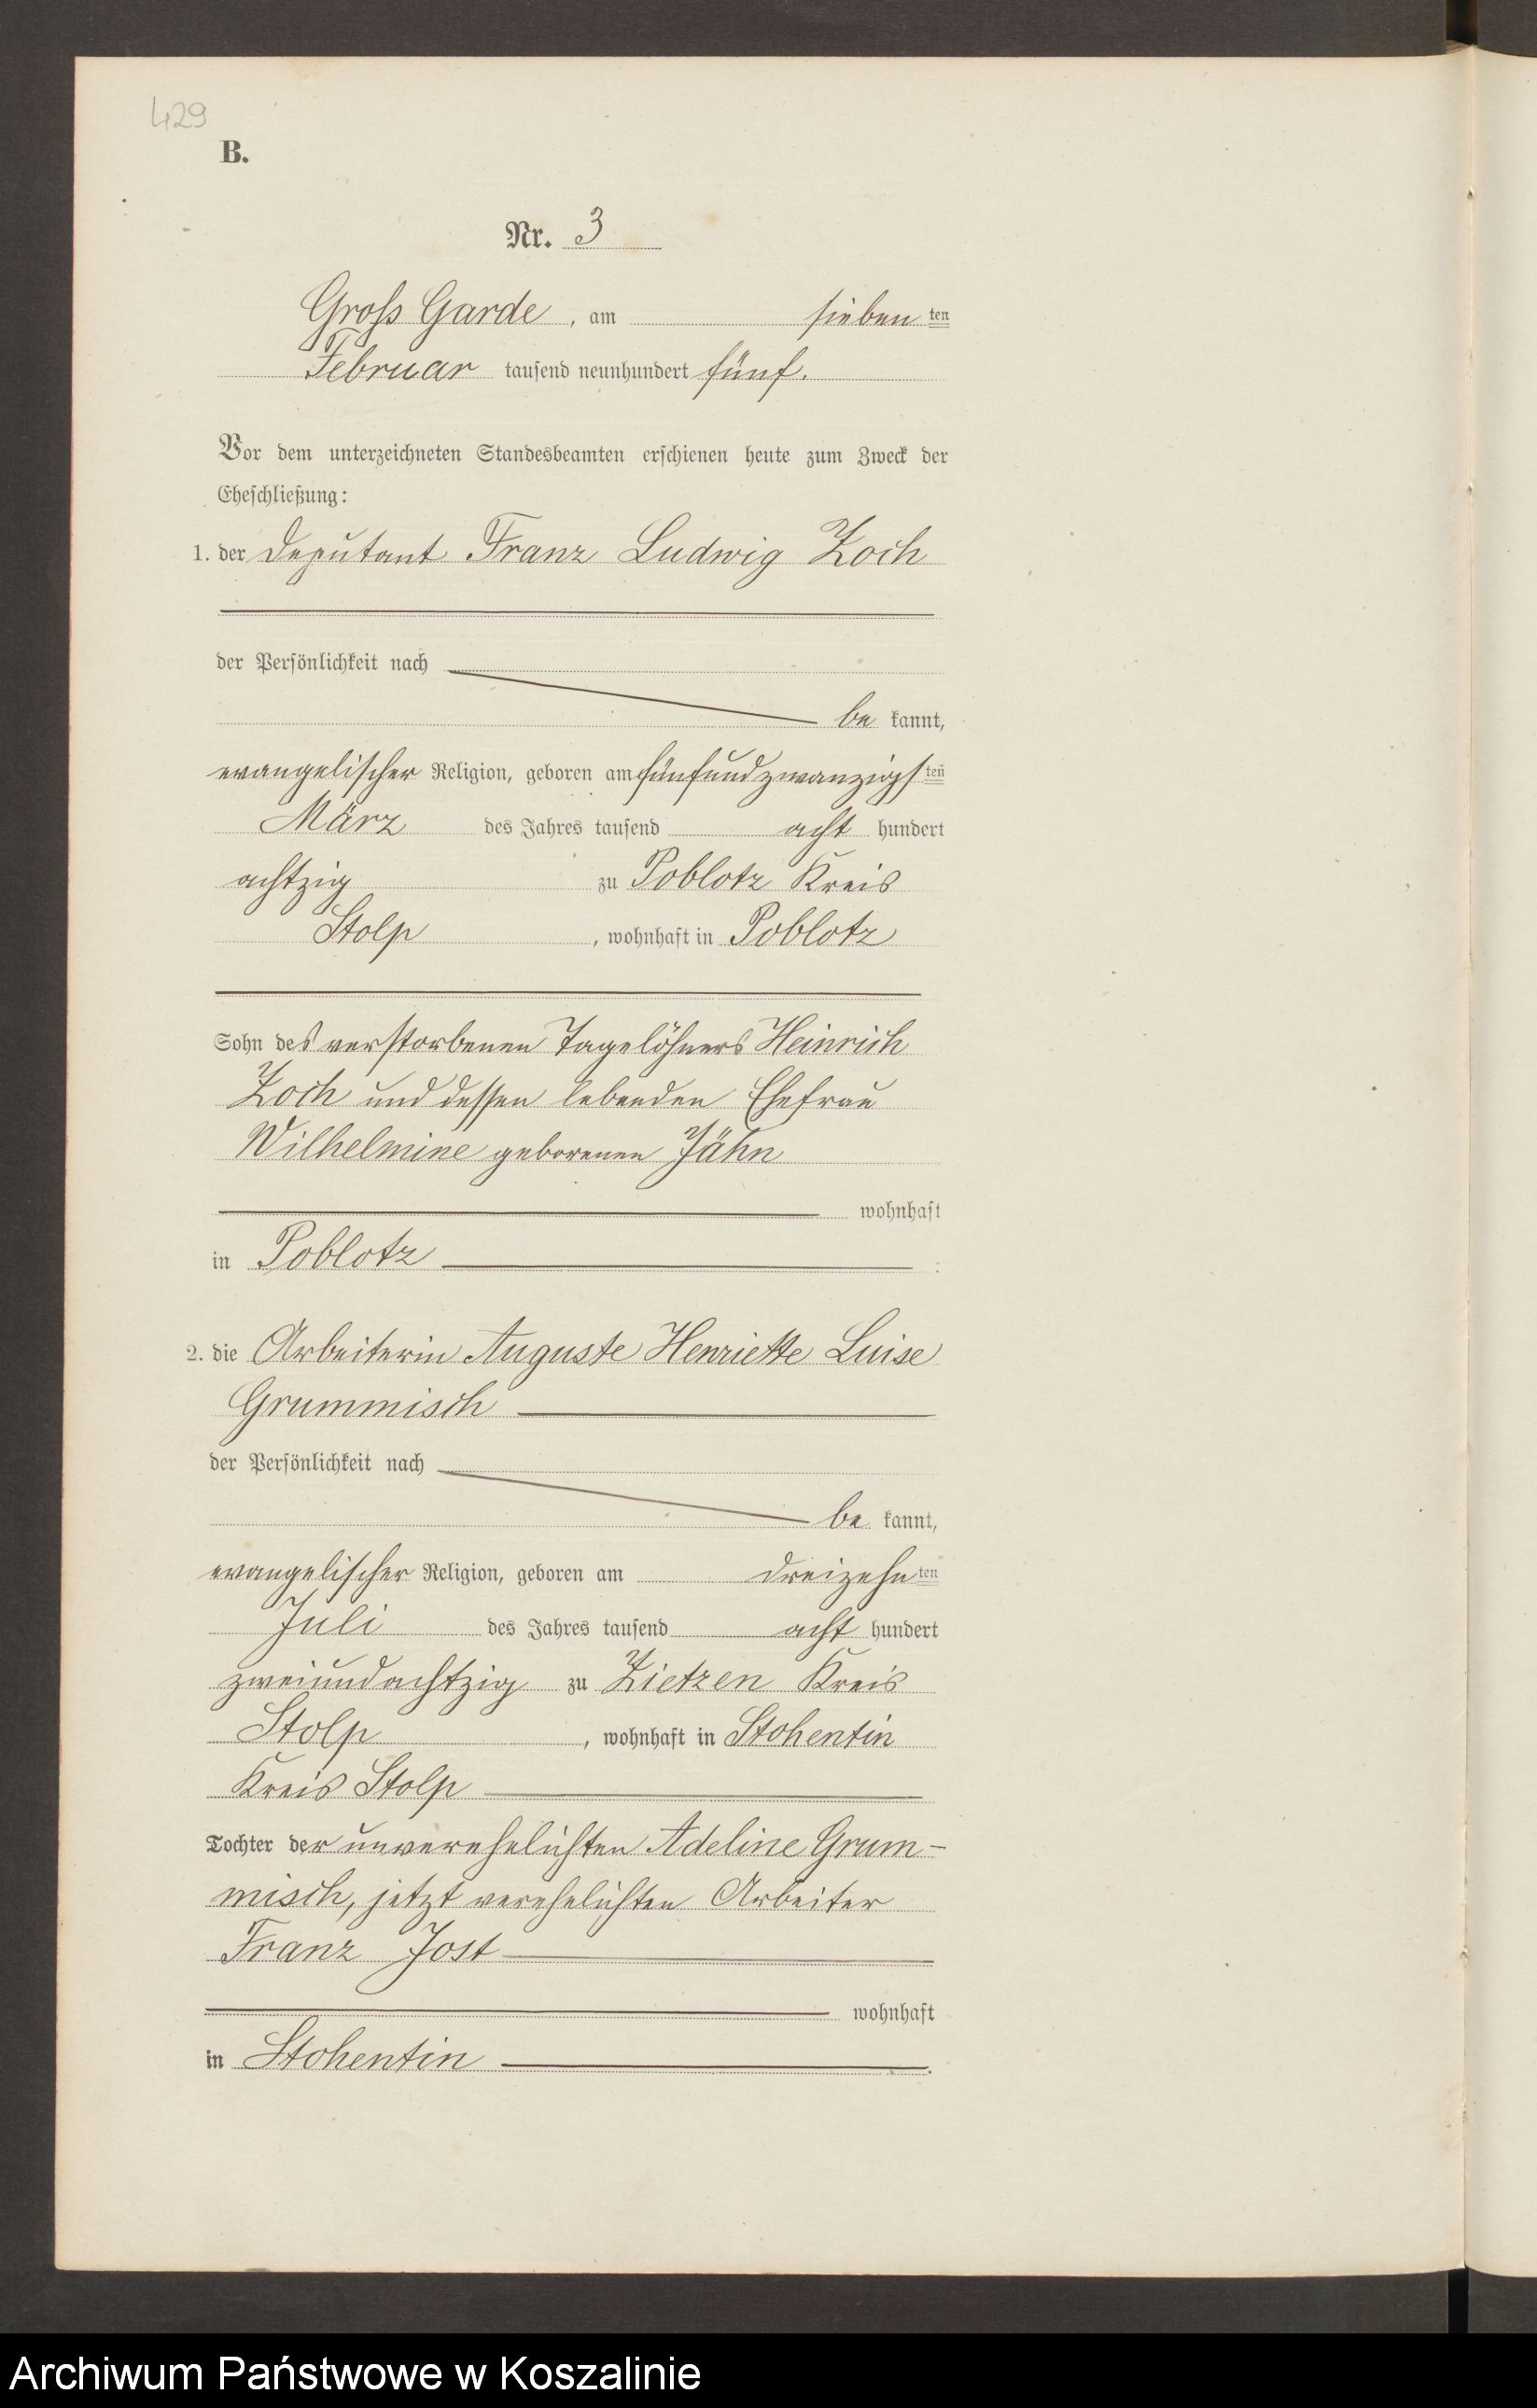 429
B.
Nr. 3
Gross Garde, am sieben ten
Februar tausend neunhundert fünf.
Vor dem unterzeichneten Standesbeamten erschienen heute zum Zweck der
Eheschließung:
1. der Deputant Franz Ludwig Zoch
der Persönlichkeit nach
be kannt,
evangelischer Religion, geboren am fünfundzwanzigsten
März des Jahres tausend acht hundert
achtzig zu Poblotz Kreis
Stolp, wohnhaft in Poblotz
Sohn des verstorbenen Tagelöhners Heinrich
Zoch und dessen lebenden Ehefrau
Wilhelmine geborenen Jähn
wohnhaft
in Poblotz :
2. die Arbeiterin Auguste Henriette Luise
Grummisch
der Persönlichkeit nach
be kannt,
evangelischer Religion, geboren am dreizehn ten
Juli des Jahres tausend acht hundert
zweiundachtzig zu Zietzen Kreis
Stolp, wohnhaft in Stohentin
Kreis Stolp
Tochter der unverehelichten Adeline Grum-
misch, jetzt verehelichten Arbeiter
Franz Jost
wohnhaft
in Stohentin.
Archiwum Państwowe w Koszalinie